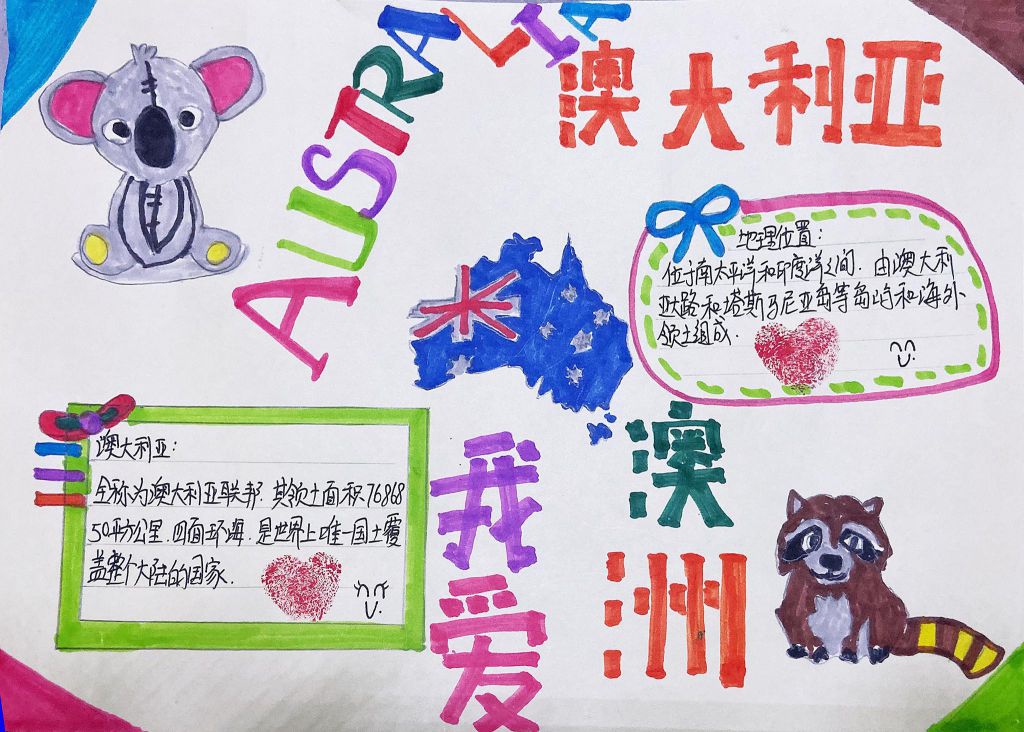 AUSTRALIA
澳大利亚
地理位置：
位于南太平洋和印度洋之间，由澳大利
亚大陆和塔斯马尼亚岛等岛屿和海外
领土组成.
澳大利亚：
全称为澳大利亚联邦.其领土面积76868
50平方公里.四面环海.是世界上唯一国土覆
盖整个大陆的国家.
我爱
澳洲